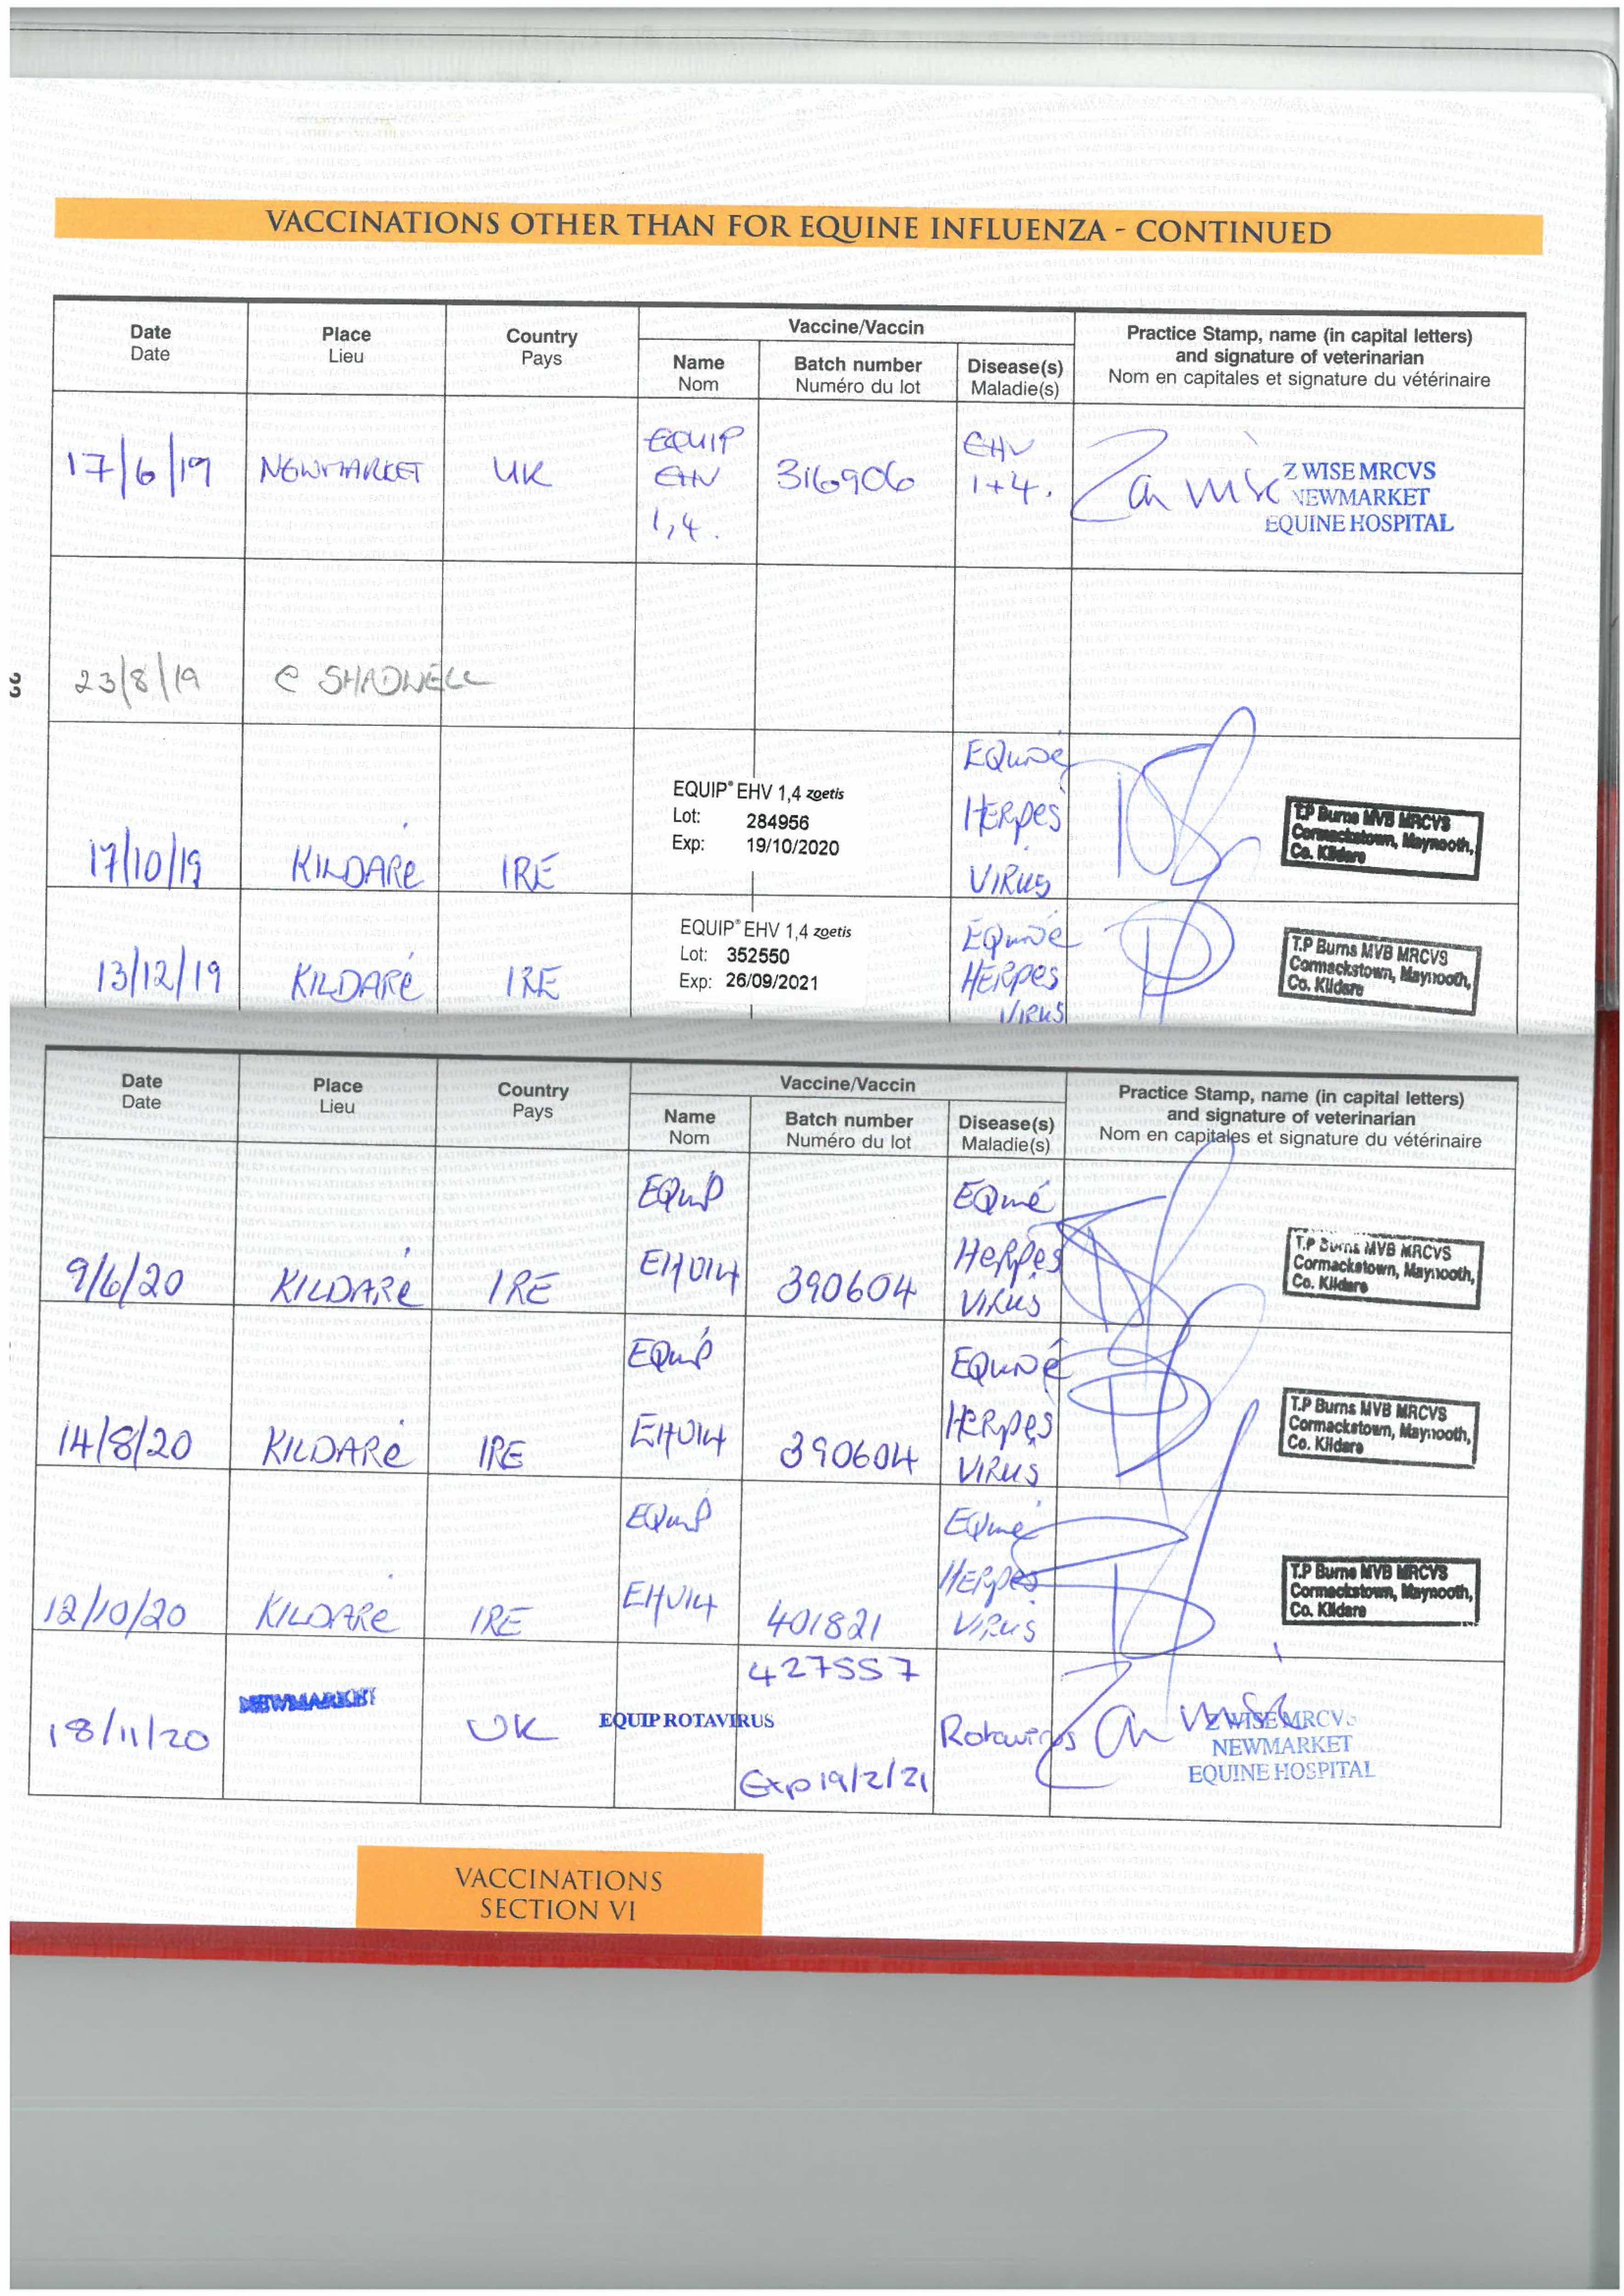 VACCINATIONS OTHER THAN FOR EQUINE INFLUENZA - CONTINUED
Date
Date
Place
Lieu
Country
Pays
Vaccine/Vaccin
Name
Nom
Batch number
Numéro du lot
Disease(s)
Maladie(s)
Practice Stamp, name (in capital letters)
and signature of veterinarian
Nom en capitales et signature du vétérinaire
17/6/19
NEWMARKET
UK
EQUIP
EHV
1,4.
316906
EHV
1+4.
Z WISE MRCVS
NEWMARKET
EQUINE HOSPITAL
23/8/19
@ SHADWELL
17/10/19
KILDARE
IRE
EQUIP® EHV 1,4 zoetis
Lot: 284956
Exp: 19/10/2020
EQUINE
HERPES
VIRUS
T.P Burns MVB MRCVS
Cormackstown, Maynooth,
Co. Kildare
13/12/19
KILDARE
IRE
EQUIP® EHV 1,4 zoetis
Lot: 352550
Exp: 26/09/2021
EQUINE
HERPES
VIRUS
T.P Burns MVB MRCVS
Cormackstown, Maynooth,
Co. Kildare
Date
Date
Place
Lieu
Country
Pays
Vaccine/Vaccin
Name
Nom
Batch number
Numéro du lot
Disease(s)
Maladie(s)
Practice Stamp, name (in capital letters)
and signature of veterinarian
Nom en capitales et signature du vétérinaire
9/6/20
KILDARE
IRE
EQUIP
EHV14
390604
EQUINE
HERPES
VIRUS
T.P Burns MVB MRCVS
Cormackstown, Maynooth,
Co. Kildare
14/8/20
KILDARE
IRE
EQUIP
EHV14
390604
EQUINE
HERPES
VIRUS
T.P Burns MVB MRCVS
Cormackstown, Maynooth,
Co. Kildare
12/10/20
KILDARE
IRE
EQUIP
EHV14
401821
EQUINE
HERPES
VIRUS
T.P Burns MVB MRCVS
Cormackstown, Maynooth,
Co. Kildare
18/11/20
NEWMARKET
UK
EQUIP ROTAVIRUS
427557
Exp 19/2/21
Rotavirus
Z WISE MRCVS
NEWMARKET
EQUINE HOSPITAL
VACCINATIONS
SECTION VI